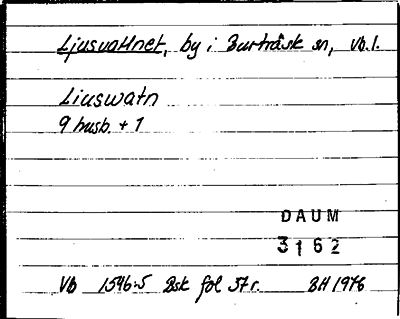 Ljusvattnet, by i Burträsk sn, Vb.l.
Liuswatn
9 husb. + 1
DAUM
3162
VB 1546:5 Bsk fol 37r. BH 1976